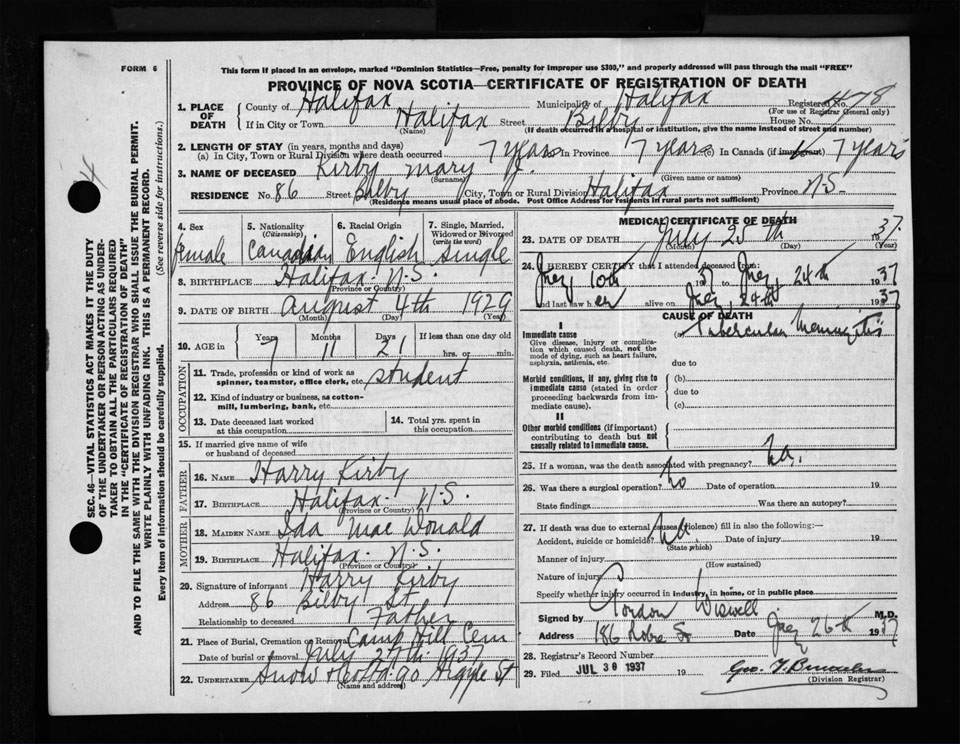 FORM 6
This form if placed in an envelope, marked "Dominion Statistics—Free, penalty for improper use $300," and properly addressed will pass through the mail "FREE"
PROVINCE OF NOVA SCOTIA—CERTIFICATE OF REGISTRATION OF DEATH
1. PLACE OF DEATH { County of Halifax Municipality of Halifax Registered No. 478
(For use of Registrar General only)
If in City or Town Halifax Street Bilby House No.
(Name) (If death occurred in a hospital or institution, give the name instead of street and number)
2. LENGTH OF STAY (in years, months and days)
(a) In City, Town or Rural Division where death occurred 7 years in Province 7 years (c) In Canada (if immigrant) 7 years
3. NAME OF DECEASED Kirby Mary
(Surname) (Given name or names)
RESIDENCE No. 86 Street Bilby City, Town or Rural Division Halifax Province N.S.
(Residence means usual place of abode. Post Office Address for residents in rural parts not sufficient)
4. Sex 5. Nationality 6. Racial Origin 7. Single, Married,
(Citizenship) Widowed or Divorced
(write the word)
female Canadian English Single
8. BIRTHPLACE Halifax N.S.
(Province or Country)
9. DATE OF BIRTH August 4th 1929
(Month) (Day) (Year)
10. AGE in { Years Months Days If less than one day old
7 11 21 hrs. or min.
OCCUPATION
11. Trade, profession or kind of work as
spinner, teamster, office clerk, etc. student
12. Kind of industry or business, as cotton-
mill, lumbering, bank, etc.
13. Date deceased last worked at this occupation 14. Total yrs. spent in this occupation
15. If married give name of wife
or husband of deceased
FATHER
16. NAME Harry Kirby
17. BIRTHPLACE Halifax N.S.
(Province or Country)
MOTHER
18. MAIDEN NAME Ida Mac Donald
19. BIRTHPLACE Halifax N.S.
(Province or Country)
20. Signature of informant Harry Kirby
Address 86 Bilby St
Relationship to deceased Father
21. Place of Burial, Cremation or Removal Camp Hill Cem
Date of burial or removal July 27th 1937
22. UNDERTAKER Snow & Co Ltd 90 Argyle St
(Name and address)
MEDICAL CERTIFICATE OF DEATH
23. DATE OF DEATH July 25th 1937
(Month) (Day) (Year)
24. I HEREBY CERTIFY that I attended deceased from:
July 10th 1937 to July 24th 1937
and last saw her alive on July 24th 1937
CAUSE OF DEATH
I
Immediate cause Tubercular Meningitis
Give disease, injury or complica-
tion which caused death, not the
mode of dying, such as heart failure,
asphyxia, asthenia, etc. due to
Morbid conditions, if any, giving rise to (b)
immediate cause (stated in order due to
proceeding backwards from im- (c)
mediate cause).
II
Other morbid conditions (if important)
contributing to death but not
causally related to immediate cause.
25. If a woman, was the death associated with pregnancy?
26. Was there a surgical operation? no Date of operation 19
State findings Was there an autopsy?
27. If death was due to external causes (violence) fill in also the following:—
Accident, suicide or homicide? Date of injury 19
(State which)
Manner of injury
(How sustained)
Nature of injury
Specify whether injury occurred in industry, in home, or in public place
Signed by Gordon Wiswell M.D.
Address 186 Robie St Date July 26th 1937
28. Registrar's Record Number
29. Filed JUL 30 1937 19
(Division Registrar)
SEC. 46—VITAL STATISTICS ACT MAKES IT THE DUTY
OF THE UNDERTAKER OR PERSON ACTING AS UNDER-
TAKER TO OBTAIN ALL THE PARTICULARS REQUIRED
IN THE "CERTIFICATE OF REGISTRATION OF DEATH"
AND TO FILE THE SAME WITH THE DIVISION REGISTRAR WHO SHALL ISSUE THE BURIAL PERMIT.
WRITE PLAINLY WITH UNFADING INK. THIS IS A PERMANENT RECORD.
Every item of information should be carefully supplied. (See reverse side for instructions.)